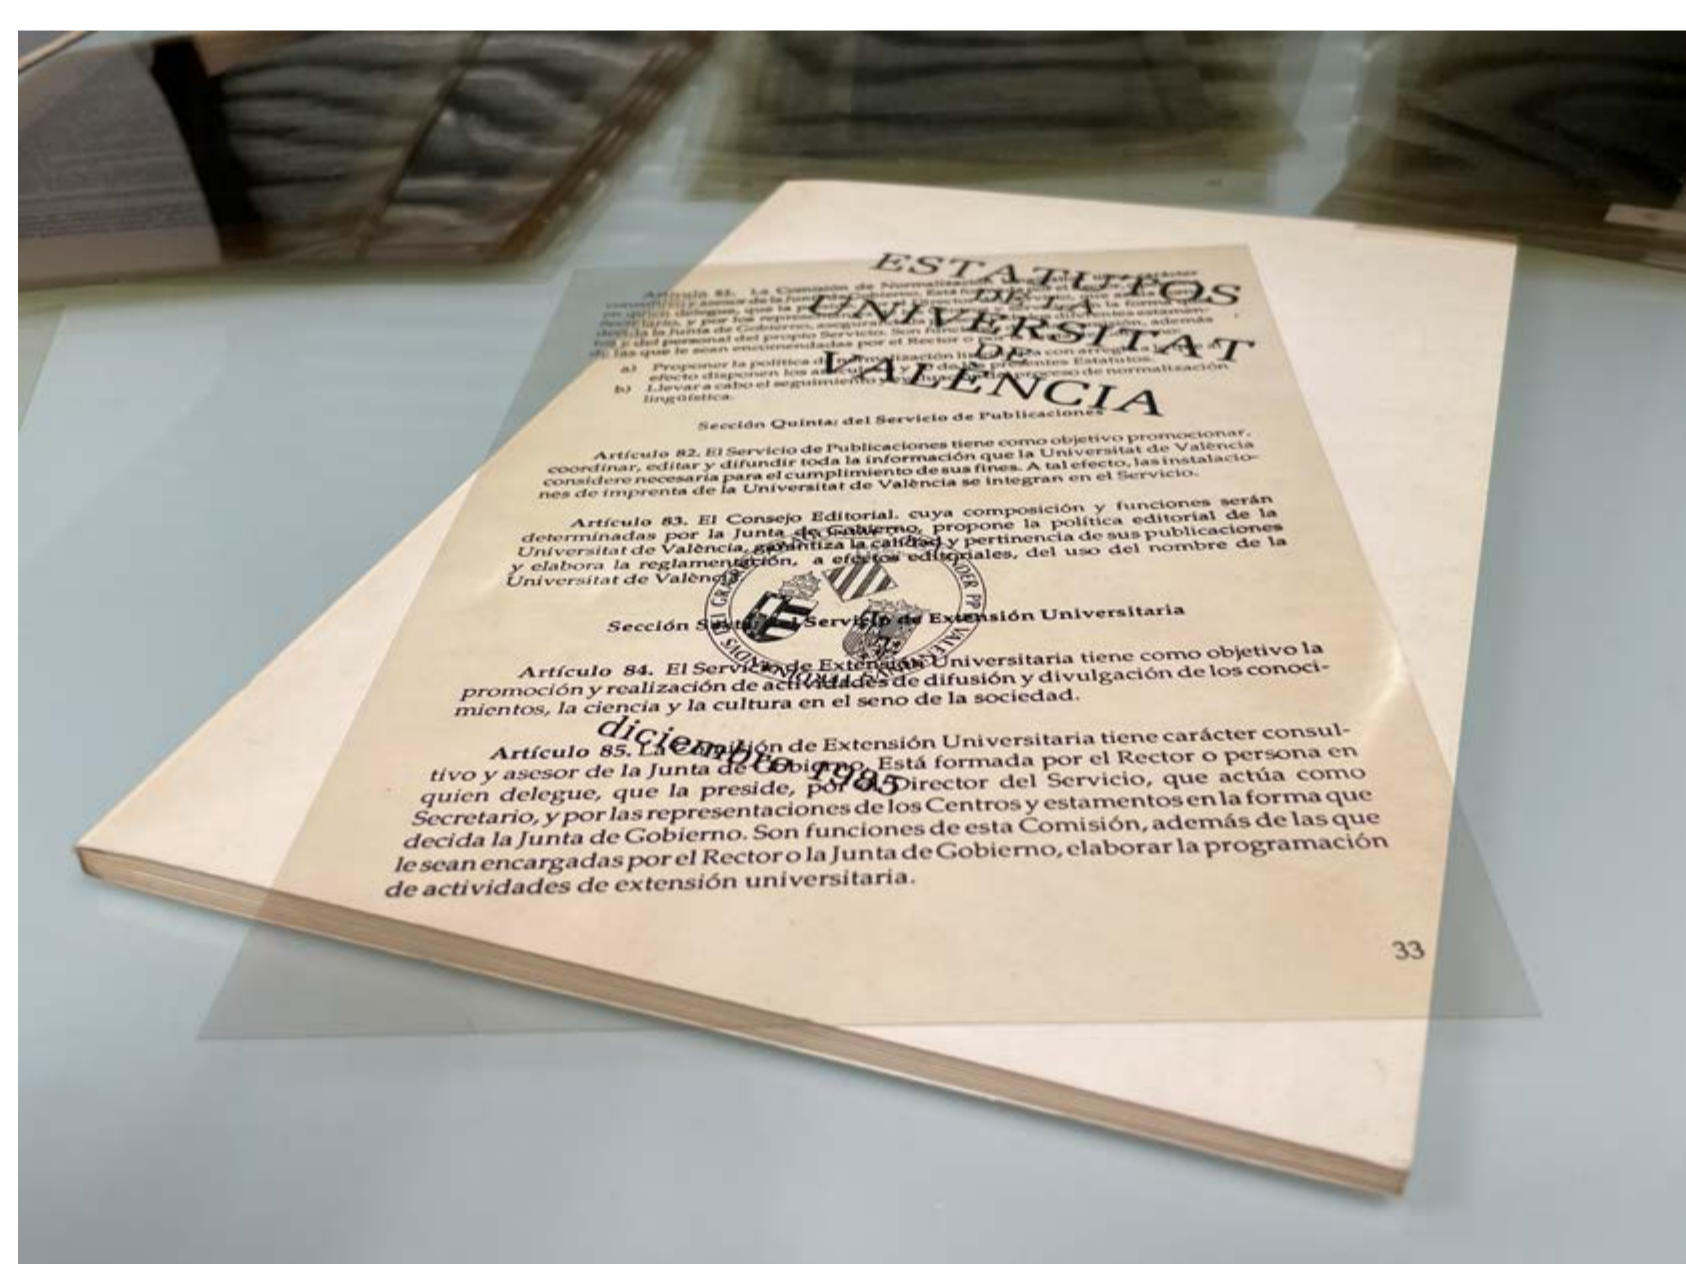 ESTATUTOS
DE LA
UNIVERSITAT
DE
VALÈNCIA
diciembre 1985
Artículo 81. La Comisión de Normalización
a) Proponer la política de normalización
efecto disponen los presentes Estatutos.
b) Llevar a cabo el seguimiento y proceso de normalización
lingüística.
Sección Quinta: del Servicio de Publicaciones
Artículo 82. El Servicio de Publicaciones tiene como objetivo promocionar,
coordinar, editar y difundir toda la información que la Universitat de València
considere necesaria para el cumplimiento de sus fines. A tal efecto, las instalacio-
nes de imprenta de la Universitat de València se integran en el Servicio.
Artículo 83. El Consejo Editorial, cuya composición y funciones serán
determinadas por la Junta de Gobierno, propone la política editorial de la
Universitat de València, garantiza la calidad y pertinencia de sus publicaciones
y elabora la reglamentación, a efectos editoriales, del uso del nombre de la
Universitat de València.
Sección Sexta: del Servicio de Extensión Universitaria
Artículo 84. El Servicio de Extensión Universitaria tiene como objetivo la
promoción y realización de actividades de difusión y divulgación de los conoci-
mientos, la ciencia y la cultura en el seno de la sociedad.
Artículo 85. La Comisión de Extensión Universitaria tiene carácter consul-
tivo y asesor de la Junta de Gobierno. Está formada por el Rector o persona en
quien delegue, que la preside, por el Director del Servicio, que actúa como
Secretario, y por las representaciones de los Centros y estamentos en la forma que
decida la Junta de Gobierno. Son funciones de esta Comisión, además de las que
le sean encargadas por el Rector o la Junta de Gobierno, elaborar la programación
de actividades de extensión universitaria.
33